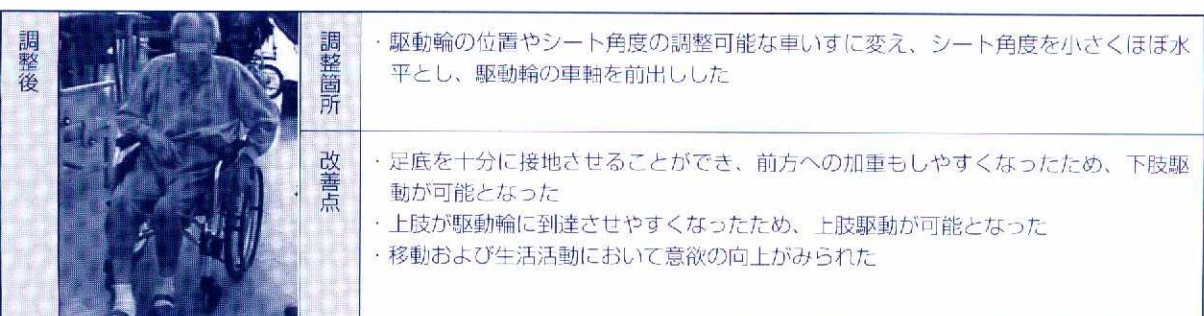 調整後
調整箇所
・駆動輪の位置やシート角度の調整可能な車いすに変え、シート角度を小さくほぼ水
平とし、駆動輪の車軸を前出しした
改善点
・足底を十分に接地させることができ、前方への加重もしやすくなったため、下肢駆
動が可能となった
・上肢が駆動輪に到達させやすくなったため、上肢駆動が可能となった
・移動および生活活動において意欲の向上がみられた